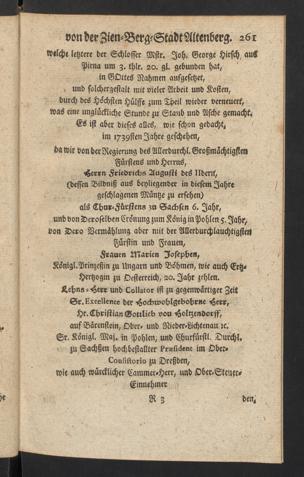 von der Zien-Berg-Stadt Altenberg. 261
welche letztere der Schlosser Mstr. Joh. George Hirsch aus
Pirna um 3. thlr. 20. gl. gebunden hat,
in GOttes Nahmen aufgesetzet,
und solchergestalt mit vieler Arbeit und Kosten,
durch des Höchsten Hülffe zum Theil wieder verneuert,
was eine unglückliche Stunde zu Staub und Asche gemacht.
Es ist aber dieses alles, wie schon gedacht,
im 1739sten Jahre geschehen,
da wir von der Regierung des Allerdurchl. Großmächtigsten
Fürstens und Herrns,
Herrn Friedrichs Augusti des Andern,
(dessen Bildniß aus beyliegender in diesem Jahre
geschlagenen Müntze zu ersehen)
als Chur-Fürstens zu Sachsen 6. Jahr,
und von Deroselben Crönung zum König in Pohlen 5. Jahr,
von Dero Vermählung aber mit der Allerdurchlauchtigsten
Fürstin und Frauen,
Frauen Marien Josephen,
Königl. Prinzeßin zu Ungarn und Böhmen, wie auch Ertz-
Hertzogin zu Oesterreich, 20. Jahr zehlen.
Lehns-Herr und Collator ist zu gegenwärtiger Zeit
Sr. Excellenz der Hochwohlgebohrne Herr,
Hr. Christian Gottlieb von Holtzendorff,
auf Bärenstein, Ober- und Nieder-Lichtenau ꝛc.
Sr. Königl. Maj. in Pohlen, und Churfürstl. Durchl.
zu Sachßen hochbestallter Præsident im Ober-
Consistorio zu Dreßden,
wie auch würcklicher Cammer-Herr, und Ober-Steuer-
Einnehmer
R 3 den,